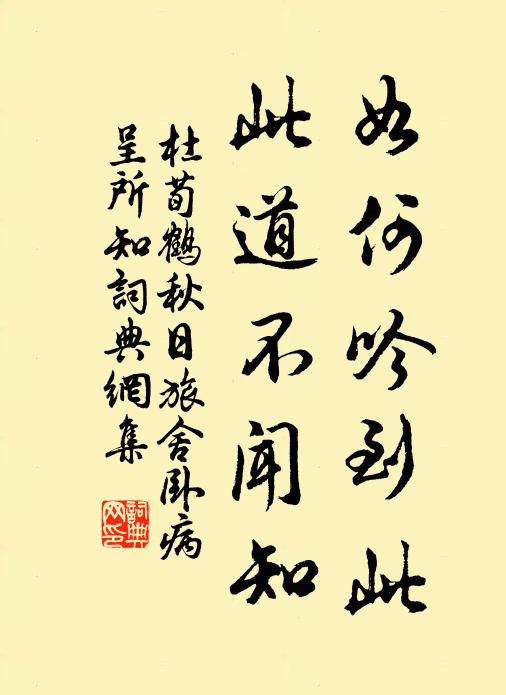 如何吟到此
此道不聞知
杜荀鶴秋日旅舍臥病
呈所知詞典網集
詞典
网印